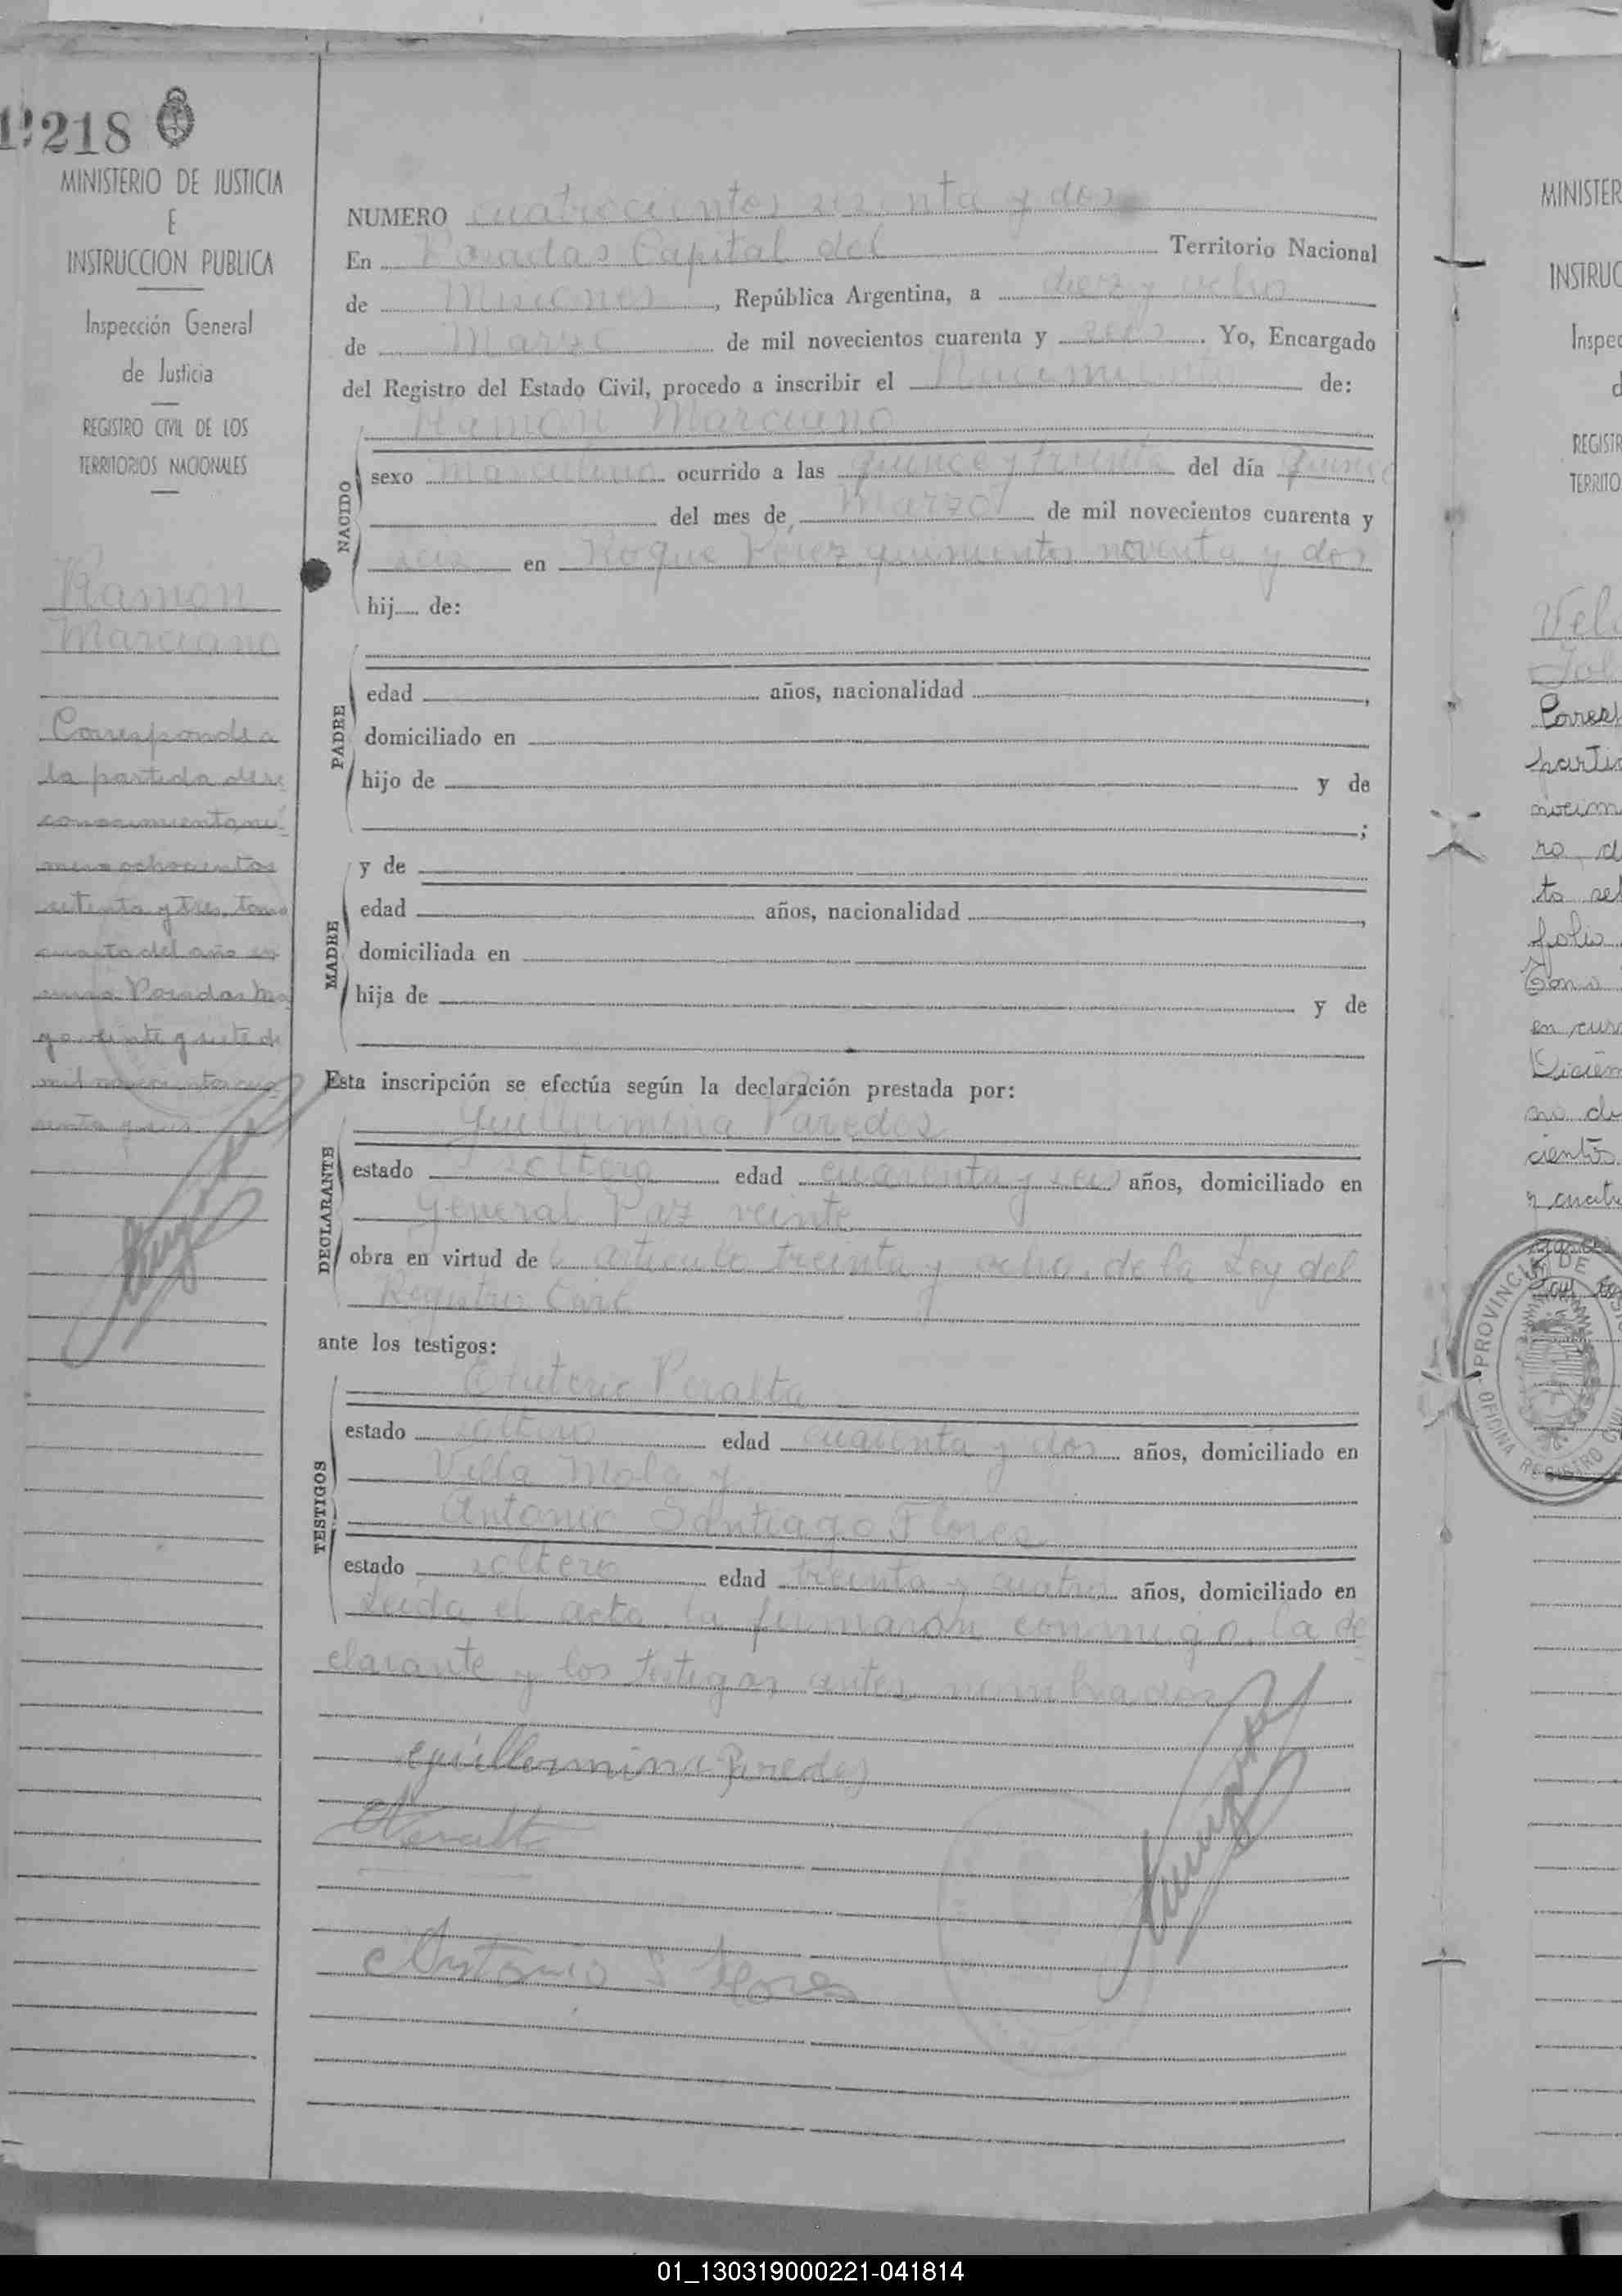 218
MINISTERIO DE JUSTICIA
E
INSTRUCCION PUBLICA
Inspección General
de Justicia
REGISTRO CIVIL DE LOS
TERRITORIOS NACIONALES
Ramón
Marciano
Corresponde a
la partida de re
conocimiento nú
mero ochocientos
setenta y tres, tomo
cuarto del año en
curso. Posadas Ma
yo veinte y siete de
mil novecientos cua
renta y seis.
NUMERO cuatrocientos sesenta y dos
En Posadas Capital del Territorio Nacional
de Misiones, República Argentina, a diez y ocho
de Marzo de mil novecientos cuarenta y seis. Yo, Encargado
del Registro del Estado Civil, procedo a inscribir el Nacimiento de:
Ramón Marciano
NACIDO
sexo masculino ocurrido a las quince y treinta del día quince
del mes de Marzo de mil novecientos cuarenta y
seis en Roque Pérez quinientos noventa y dos
hij de:
PADRE
edad años, nacionalidad ,
domiciliado en
hijo de y de
;
y de
MADRE
edad años, nacionalidad ,
domiciliada en
hija de y de
Esta inscripción se efectúa según la declaración prestada por:
Guillermina Paredes
DECLARANTE
estado soltera edad cuarenta y seis años, domiciliado en
General Paz veinte
obra en virtud de articulo treinta y ocho de la Ley del
Registro Civil
ante los testigos:
Eleuterio Peralta
TESTIGOS
estado soltero edad cuarenta y dos años, domiciliado en
Villa Mola y
Antonio Santiago Flores
estado soltero edad treinta y cuatro años, domiciliado en
Leída el acta la firmaron conmigo, la de
clarante y los testigos antes nombrados
Guillermina Paredes
Antonio S. Flores
MINISTER
INSTRUC
Inspec
d
REGISTR
TERRITO
Vel
Corres
parti
nocim
ro
to se
folio
Tomo
en curs
Diciem
no de
cientos
y cuatr
PROVINCIA DE
OFICINA REGISTRO
01_130319000221-041814